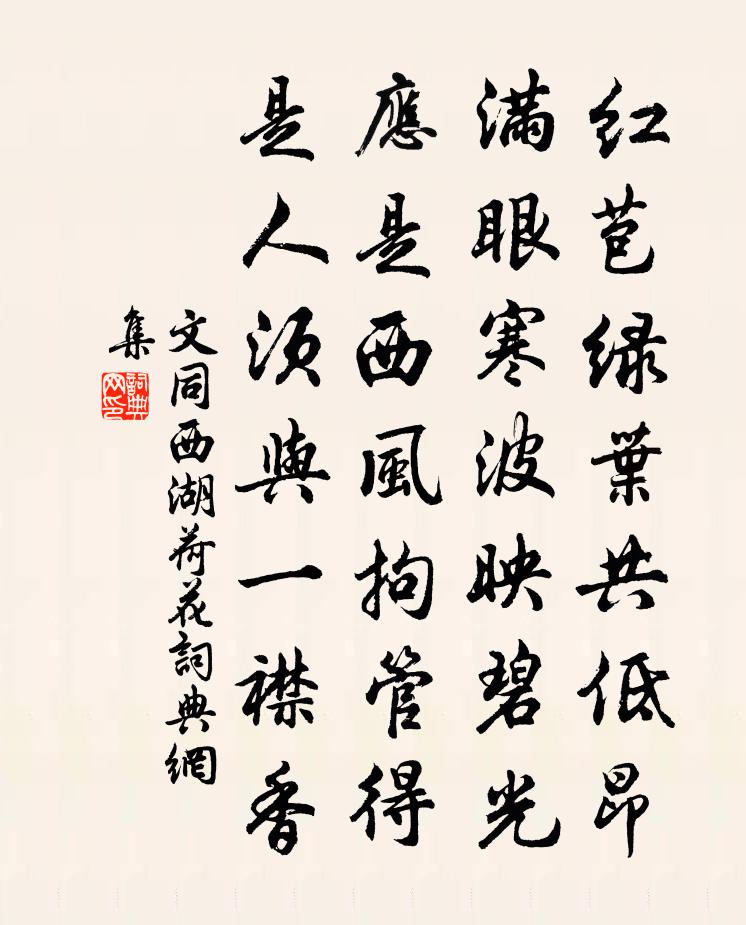 红苞绿葉共低昂
滿眼寒波映碧光
應是西風拘管得
是人須與一襟香
文同西湖荷花詞典網
集
詞典
网印